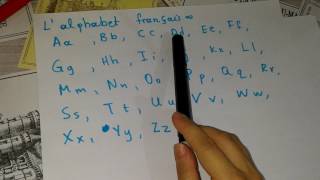 L'alphabet français
Aa, Bb, Cc, Dd, Ee, Ff,
Gg, Hh, Ii, Kk, Ll,
Mm, Nn, Oo, Pp, Qq, Rr,
Ss, Tt, Uu, Vv, Ww,
Xx, Yy, Zz